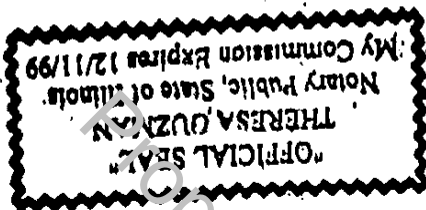 "OFFICIAL SEAL"
THERESA GUZMAN
Notary Public, State of Illinois
My Commission Expires 12/11/99